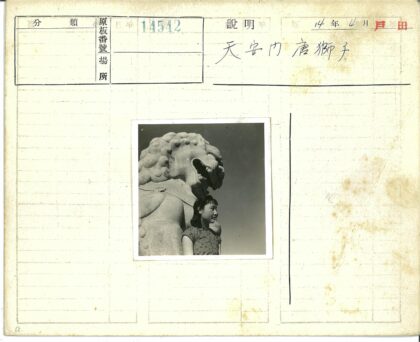 分類
原板番號
場所
14542
説明
14年 4月 戸田
天安门 唐獅子